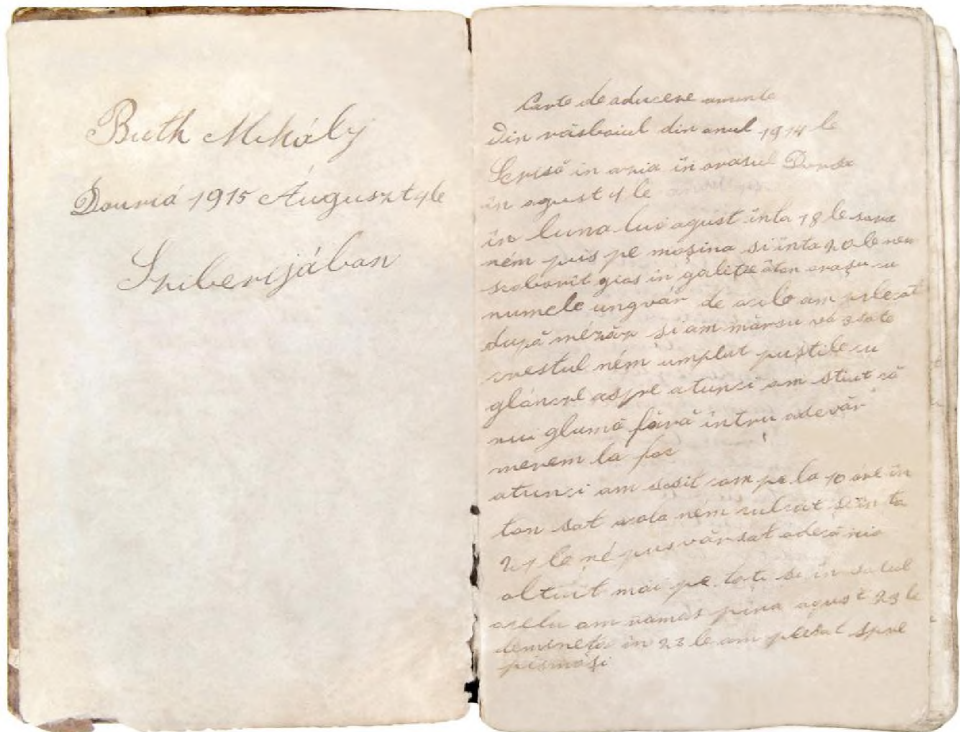 Buth Mihály
Dauria 1915 Áuguszt 4 le
Sziberijában
Carte de aducere aminte
din răsboiul din anul 1914 le
Scrisă in azia in orasul Dauria
in agust 4 le
in luna lui agust inta 18 le sara
ném puis pe mașina si inta 20 le nem
szoborit gios in galiție
numele ungvár de acolo am plecat
după mézăz si am mărsu
ném umplat puștile cu
glánțe aspre atunci am stiut că
nui glumă fără intru adevăr
merem la foc
atunci am sosit cam pe la 10 ore in
ton sat acolo ném culcat si in ta
21 le né pus vărsat
altuit mai pe toti si in satul
acela am rămas pina agust 23 le
demineța in 23 le am plecat spre